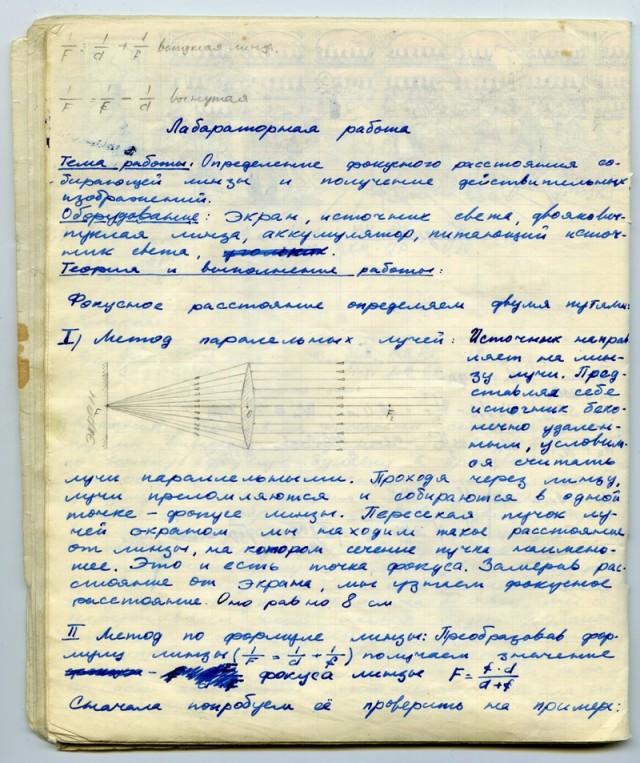 1/F = 1/d + 1/f выпуклая линз.
1/F = 1/f - 1/d вогнутая
Лабараторная работа
Тема работы: Определение фокусного расстояния со-
бирающей линзы и получение действительных
изображений.
Оборудование: Экран, источник света, двояковы-
пуклая линза, аккумулятор, питающий источ-
ник света,
Теория и выполнение работы:
Фокусное расстояние определяем двумя путями:
I) Метод паралельных лучей: Источник направ
ляет на лин-
зу лучи. Пред-
ставляя себе
источник беско-
нечно удален-
ным, условим-
ся считать
экран
F
лучи параллельными. Проходя через линзу,
лучи преломляются и собираются в одной
точке - фокусе линзы. Пересекая пучок лу-
чей экраном мы находим такое расстояние
от линзы, на котором сечение пучка наимень-
шее. Это и есть точка фокуса. Замерив рас-
стояние от экрана, мы узнаем фокусное
расстояние. Оно равно 8 см
II Метод по формуле линзы: Преобразовав фор-
мулу линзы (1/F = 1/d + 1/f) получаем значение
- фокуса линзы F = f·d/d+f
Сначала попробуем её проверить на примере: